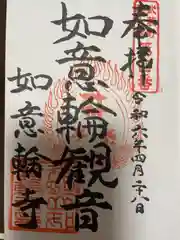 奉拝
令和六年四月二十八日
如意輪観音
如意輪寺